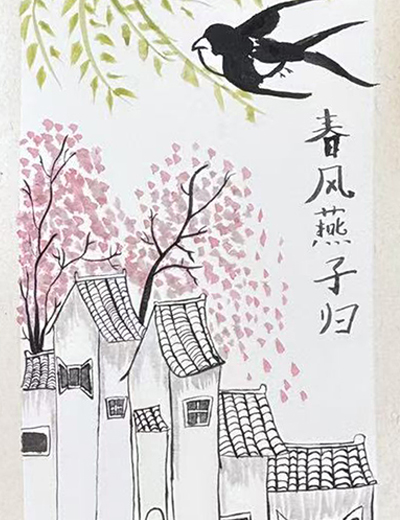 春风燕子归